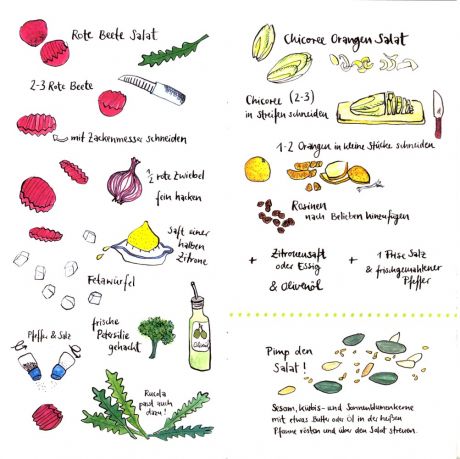 Rote Beete Salat
2-3 Rote Beete
mit Zackenmesser schneiden
1/2 rote Zwiebel
fein hacken
Saft einer
halben
Zitrone
Fetawürfel
frische
Petersilie
gehackt
Pfeffer & Salz
Olivenöl
Rucola
passt auch
dazu!
Chicoree Orangen Salat
Chicoree (2-3)
in Streifen schneiden
1-2 Orangen in kleine Stücke schneiden
Rosinen
nach Belieben hinzufügen
+ Zitronensaft
oder Essig
& Olivenöl
+ 1 Prise Salz
& frischgemahlener
Pfeffer
Pimp den
Salat!
Sesam, Kürbis- und Sonnenblumenkerne
mit etwas Butter oder Öl in der heißen
Pfanne rösten und über den Salat streuen.